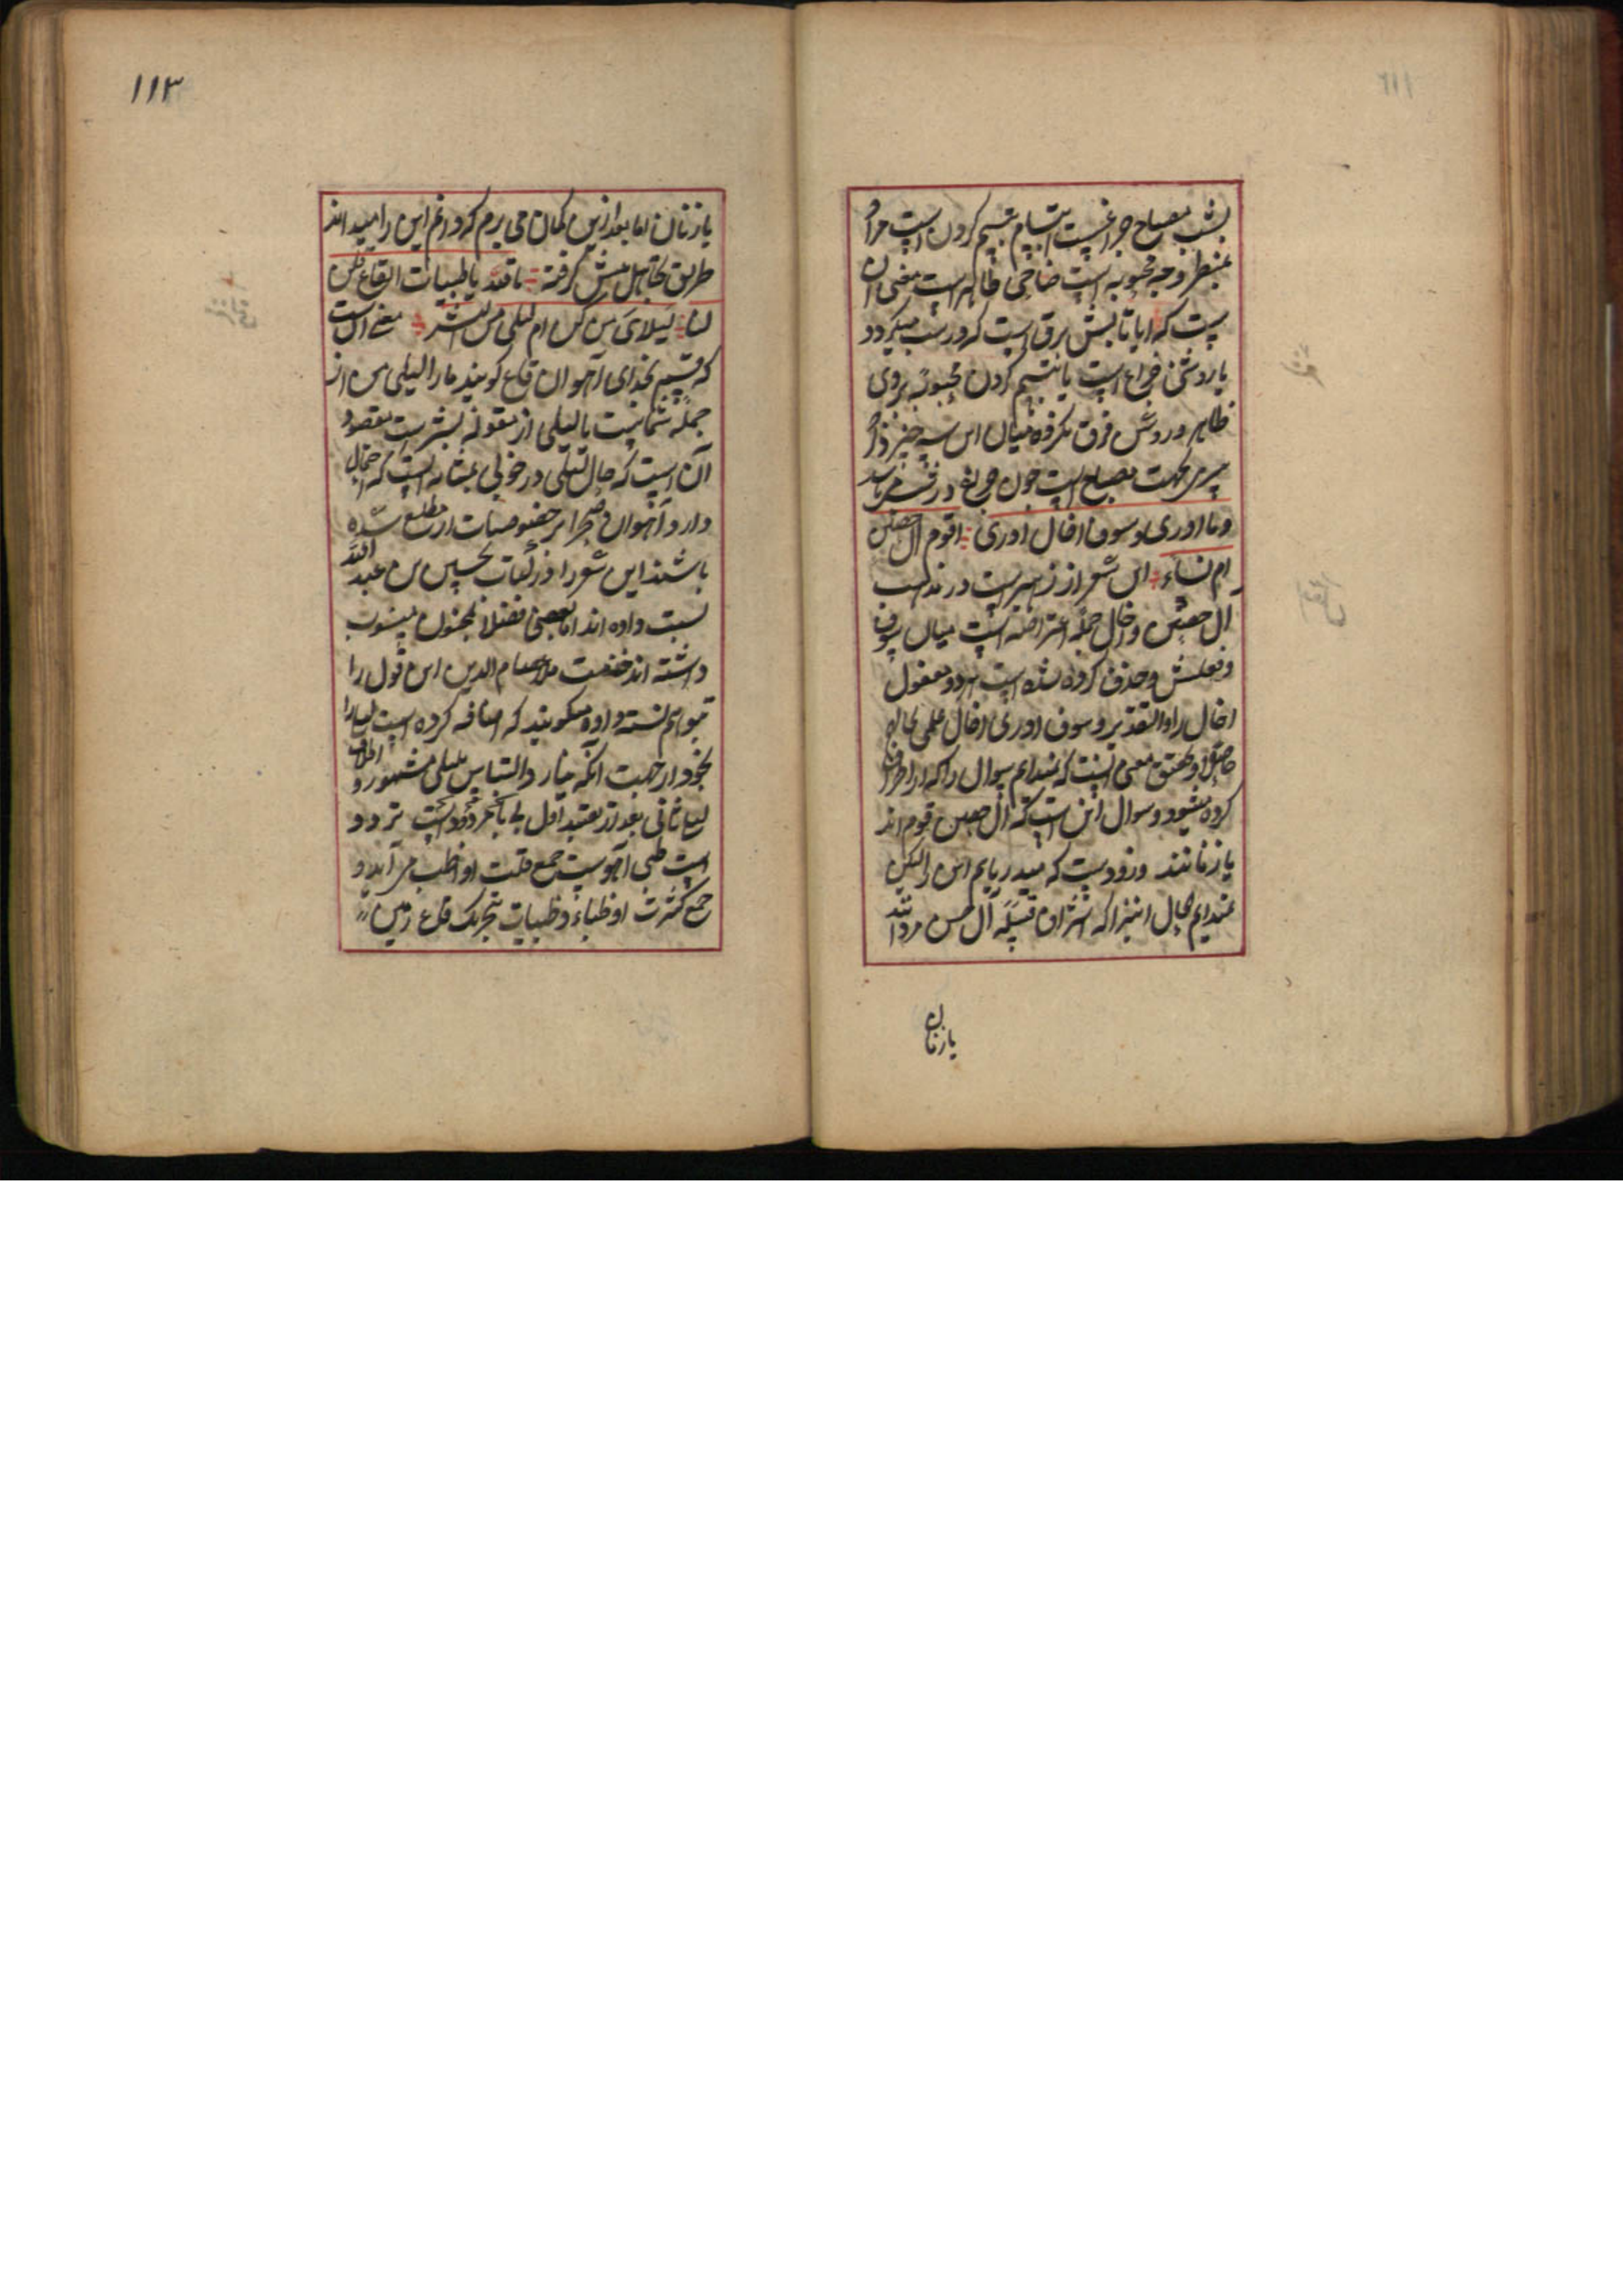 بشب مصباح چراغست ابتسام تبسم کردن است مراد
بمنظر وجه محبوبه است ضاحی ظاهر است معنی آن
ست که ایا تابش برق است که در شب میگردد
یا روشنی چراغ است یا تبسم کردن محبوبه بروی
ظاهر و روشن فرق نکرده میان این سه چیز
وما ادری وسوف اخال ادری اقوم آل حصن
ام نساء این شعر از زهیر است در مذمت
آل حصن و اخال جمله اعتراضیه است میان سوف
و فعلش و حذف کرده شده است هر دو مفعول
اخال را والتقدیر وسوف ادری اخال علمی بحاله
حاصلا و تحقیق معنی اینست که نمیدانم سوال را که از اطراف
کرده میشود و سوال این است که آل حصن قوم اند
یا زنانند و زودست که میدریابم این را لیکن
نمیدانم بحال اینرا که اشراف قبیله آل حصن مردانند
یا زنان
۱۱۳
یا زنان اما بعد ازین گمان می برم که دانم این را میداند
طریق تجاهل پیش گرفته بالله یا ظبیات القاع قلن
لنا لیلای منکن ام لیلی من البشر معنی آنست
که قسم بخدای آهوان قاع گویید ما را لیلی من از
جمله شماست یا لیلی از مقوله بشر است مقصود
آن است که حال لیلی در خوبی بمثابه است که احتمال
دارد آهوان صحرا بر خصوصیات آن مطلع شده
باشند این شعر را در لغات بحسین بن عبد الله
نسبت داده اند اما بعضی فضلا بمجنون منسوب
داشته اند حضرت ملا عصام الدین این قول را
بخود از جهت آنکه والتباس بلیلی مشهور و اطلاق
لیلی ثانی بعد از تقیید اول
است ظبی آهوست جمع قلت او اظب می آید و
جمع کثرت او ظباء و ظبیات بتحریک قاع زمین